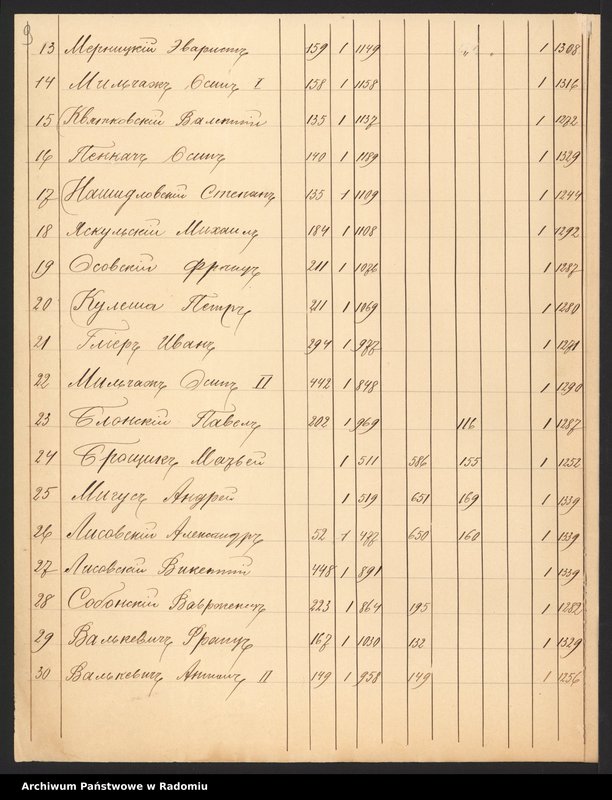 9
13 Мерницкій Эваристъ 159 1 1149 " " 1 1308
14 Мильчакъ Осипъ I 158 1 1158 1 1316
15 Квятковскій Валентій 135 1 1137 1 1272
16 Пеккачъ Осипъ 140 1 1189 1 1329
17 Нашидловскій Степанъ 135 1 1109 1 1244
18 Яскульскій Михаилъ 184 1 1108 1 1292
19 Осовскій Францъ 211 1 1076 1 1287
20 Кулеша Петръ 211 1 1069 1 1280
21 Глеръ Иванъ 294 1 977 1 1271
22 Мильчакъ Осипъ II 442 1 848 1 1290
23 Блонскій Павелъ 202 1 969 116 1 1287
24 Брощикъ Матвей 1 511 586 155 1 1252
25 Мигусъ Андрей 1 519 651 169 1 1339
26 Лисовскій Александръ 52 1 477 650 160 1 1339
27 Лисовскій Викентій 448 1 891 1 1339
28 Собонскій Вавржинецъ 223 1 864 195 1 1282
29 Валькевичъ Францъ 167 1 1030 132 1 1329
30 Валькевичъ Антонъ II 149 1 958 149 1 1256
Archiwum Państwowe w Radomiu